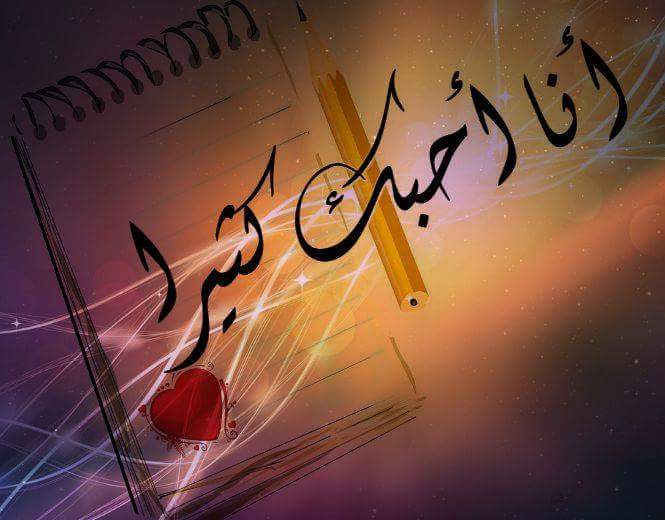 أنا أحبك كثيرا